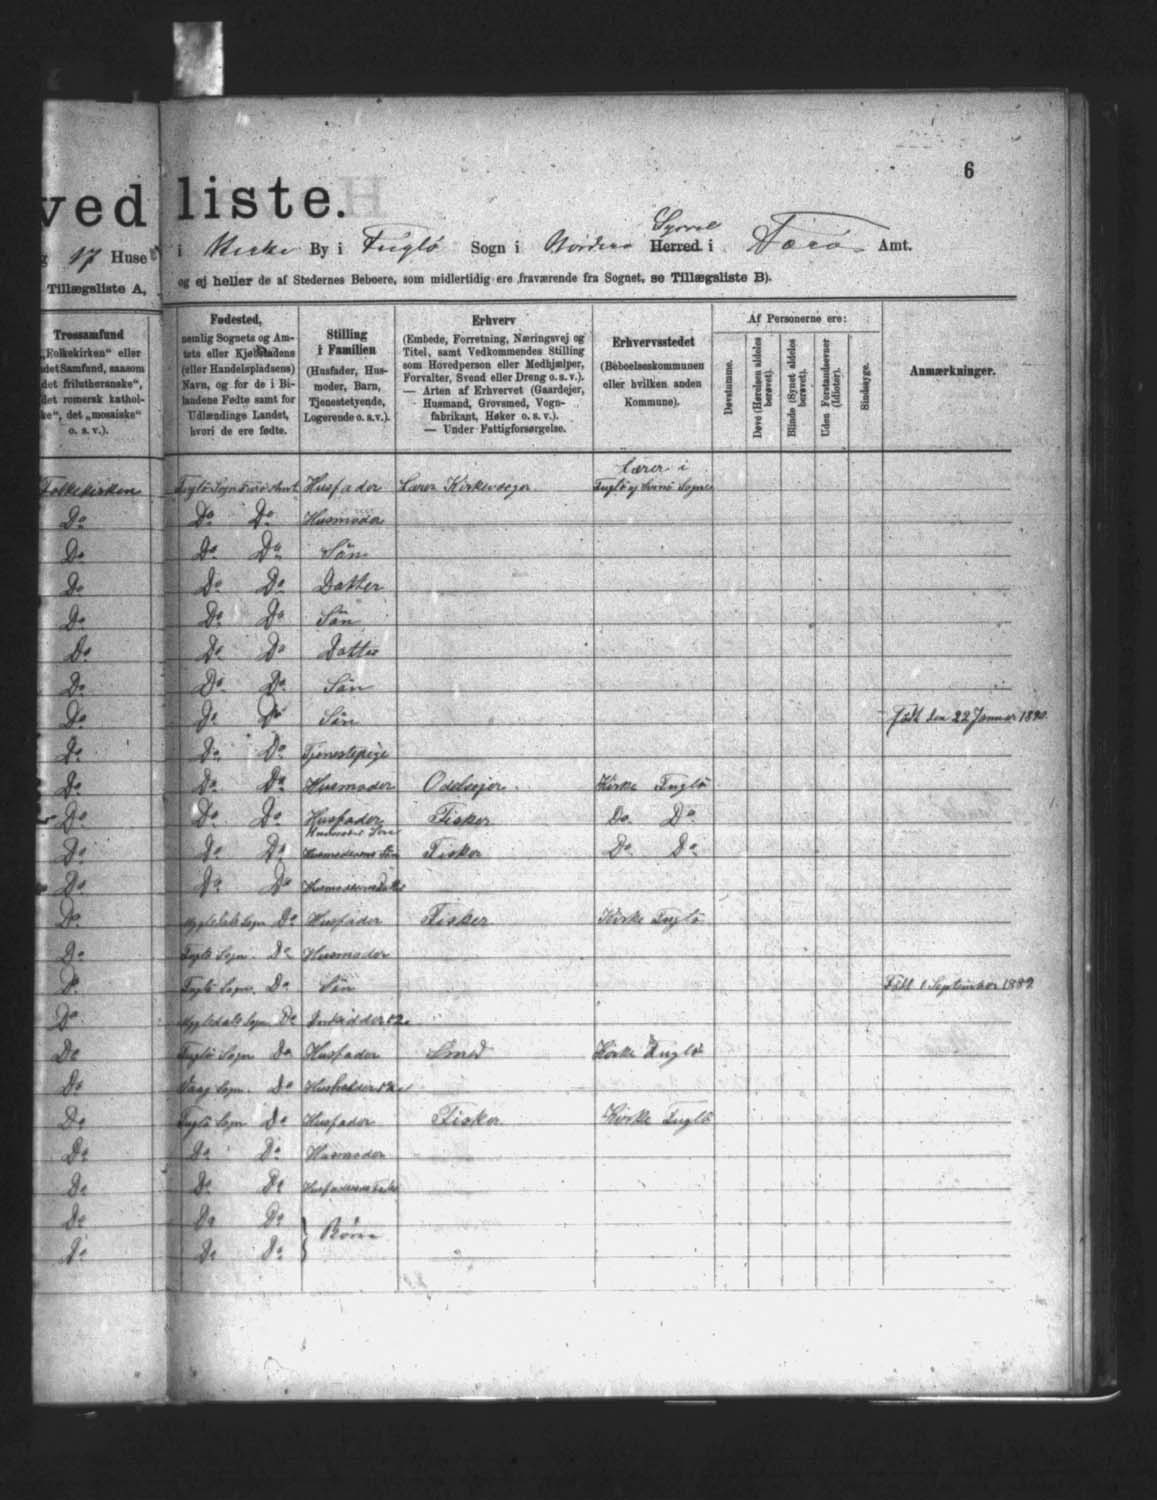 6
ved liste.
17 Huse i Kirke By i Fuglö Sogn i Nordere Herred i Færö Amt.
Syssel
Tillægsliste A, og ej heller de af Stedernes Beboere, som midlertidig ere fraværende fra Sognet, se Tillægsliste B).
Trossamfund
„Folkekirken“ eller
det Samfund, saasom
det frilutheranske“,
det romersk kathol-
ke“, det „mosaiske“
o. s. v.).
Fødested,
nemlig Sognets og Am-
tets eller Kjøbstadens
(eller Handelspladsens)
Navn, og for de i Bi-
landene Fødte samt for
Udlændinge Landet,
hvori de ere fødte.
Stilling
i Familien
(Husfader, Hus-
moder, Barn,
Tjenestetyende,
Logerende o. s. v.).
Erhverv
(Embede, Forretning, Næringsvej og
Titel, samt Vedkommendes Stilling
som Hovedperson eller Medhjælper,
Forvalter, Svend eller Dreng o. s. v.).
— Arten af Erhvervet (Gaardejer,
Husmand, Grovsmed, Vogn-
fabrikant, Høker o. s. v.).
— Under Fattigforsørgelse.
Erhvervsstedet
(Beboelseskommunen
eller hvilken anden
Kommune).
Af Personerne ere:
Døvstumme.
Døve (Hørelsen aldeles
berøvet).
Blinde (Synet aldeles
berøvet).
Uden Forstandsevner
(Idioter).
Sindssyge.
Anmærkninger.
Lærer i
Folkekirken Fuglö Sogn Færö Amt Husfader Lærer Kirkesoger Fuglö og Svinö Sogne
Do Do Do Husmoder
Do Do Do Sön
Do Do Do Datter
Do Do Do Sön
Do Do Do Datter
Do Do Do Sön
Do Do Do Sön Født den 22 Januar 1890
Do Do Do Tjenestepige
Do Do Do Husmoder Odelsejer Kirke Fuglö
Do Do Do Husfader Fisker Do Do
Husmoders Søn
Do Do Do Husmoderens Sön Fisker Do Do
Do Do Do Husmoderens
Do Sogn Do Husfader Fisker Kirke Fuglö
Do Fuglö Sogn. Do Husmoder
Do Fuglö Sogn. Do Sön Född 1 September 1889
Do Sogn Do
Do Fuglö Sogn Do Husfader Smed Kirke Fuglö
Do Vaag Sogn. Do
Do Fuglö Sogn Do Husfader Fisker Kirke Fuglö
Do Do Do Husmoder
Do Do Do Husfaderens
Do Do Do
Børn
Do Do Do